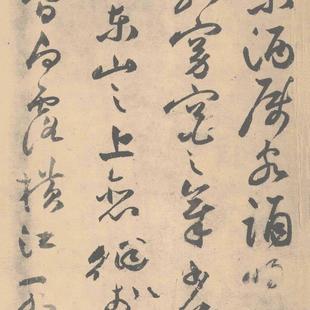 酒屬客誦明
窈窕之章少
東山之上徘徊於
白露橫江